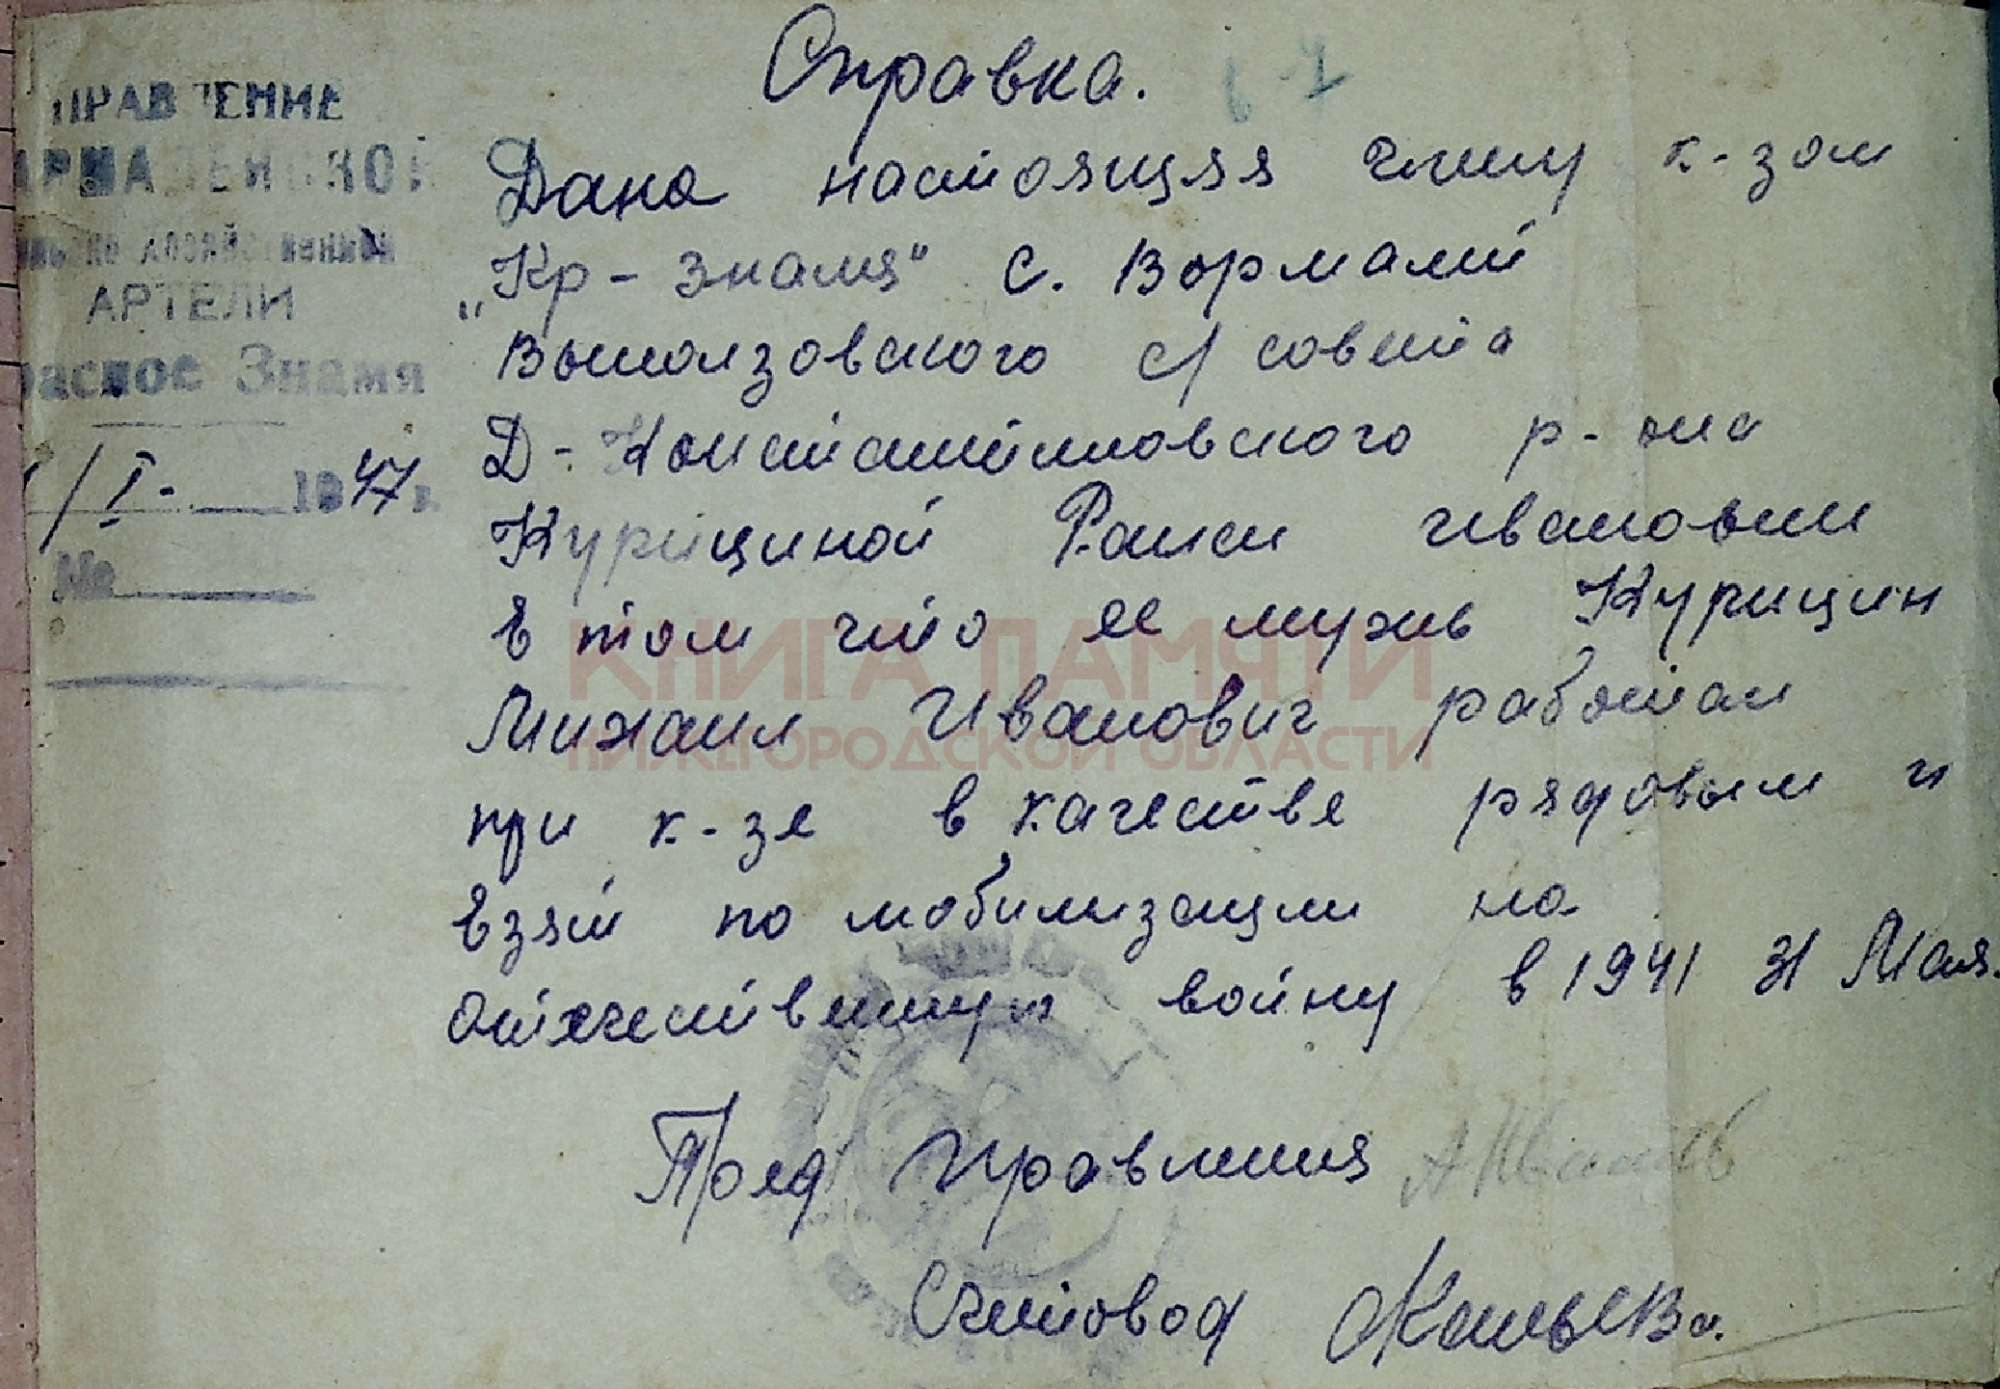 Справка.
ПРАВЛЕНИЕ
АРТЕЛИ
Красное Знамя
I - 1947 г.
№
Дана настоящяя члену к-зом
„Кр-знамя" с. Вормалей
Выползовского с/совета
Д-Константиновского р-она
Курициной Раиси Ивановни
в том что ее мужъ Курицин
Михаил Иванович работал
при к-зе в качестве рядовым и
взят по мобилизации на
отечественную войну в 1941 31 Мая.
Пред Правления АИванов
Счетовод
КНИГА ПАМЯТИ
НИЖЕГОРОДСКОЙ ОБЛАСТИ